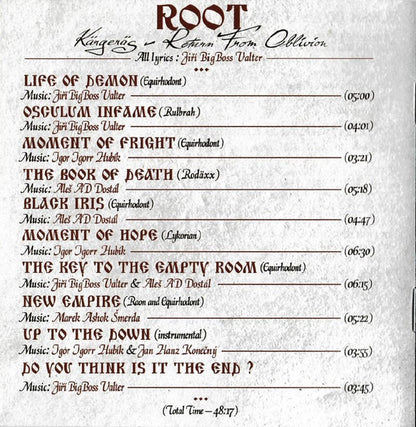 ROOT
Kärgeräs - Return From Oblivion
All lyrics : Jiří BigBoss Valter
•••
LIFE OF DEMON (Equirhodont)
Music: Jiří BigBoss Valter (05:00)
OSCULUM INFAME (Rulbrah)
Music: Jiří BigBoss Valter (04:01)
MOMENT OF FRIGHT (Equirhodont)
Music: Igor Igorr Hubík (03:21)
THE BOOK OF DEATH (Rodäxx)
Music: Aleš AD Dostál (05:18)
BLACK IRIS (Equirhodont)
Music: Aleš AD Dostál (04:47)
MOMENT OF HOPE (Lykorian)
Music: Igor Igorr Hubík (06:30)
THE KEY TO THE EMPTY ROOM (Equirhodont)
Music: Jiří BigBoss Valter & Aleš AD Dostál (06:15)
NEW EMPIRE (Raon and Equirhodont)
Music: Marek Ashok Smerda (05:22)
UP TO THE DOWN (instrumental)
Music: Igor Igorr Hubík & Jan Hanz Konečný (03:55)
DO YOU THINK IS IT THE END ?
Music: Jiří BigBoss Valter (03:45)
•••
(Total Time – 48:17)